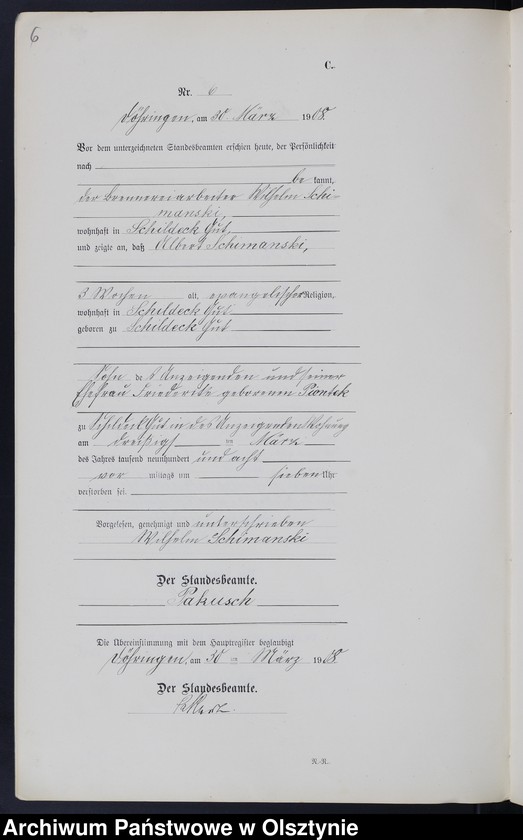 6
C.
Nr. 6
Döhringen, am 30 März 1908.
Vor dem unterzeichneten Standesbeamten erschien heute, der Persönlichkeit
nach
be kannt,
der Brennereiarbeiter Wilhelm Schi-
manski,
wohnhaft in Schildeck Gut,
und zeigte an, daß Albert Schimanski,
3 Wochen alt, evangelischer Religion,
wohnhaft in Schildeck Gut
geboren zu Schildeck Gut
Sohn des Anzeigenden und seiner
Ehefrau Friederike geborenen Piontek
zu Schildeck Gut in des Anzeigenden Wohnung
am dreißigsten März
des Jahres tausend neunhundert und acht
vor mittags um sieben Uhr
verstorben sei.
Vorgelesen, genehmigt und unterschrieben
Wilhelm Schimanski
Der Standesbeamte.
Pakusch
Die Übereinstimmung mit dem Hauptregister beglaubigt
Döhringen, am 30 März 1908.
Der Standesbeamte.
R.-R.
Archiwum Państwowe w Olsztynie